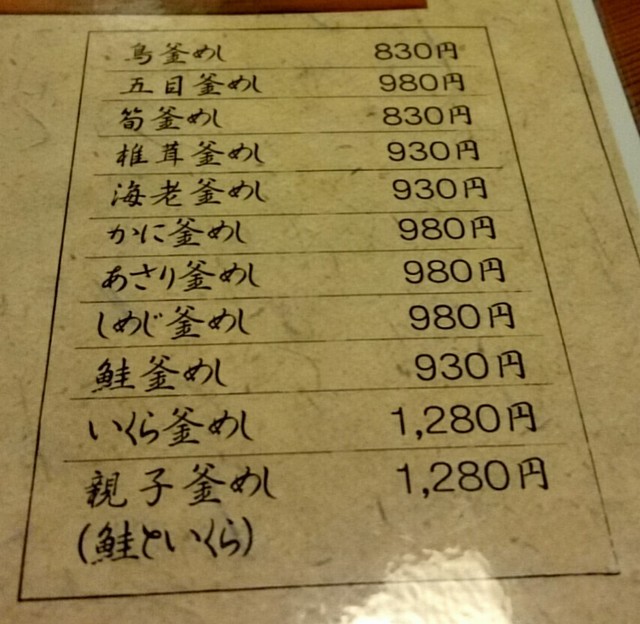 鳥釜めし 830円
五目釜めし 980円
筍釜めし 830円
椎茸釜めし 930円
海老釜めし 930円
かに釜めし 980円
あさり釜めし 980円
しめじ釜めし 980円
鮭釜めし 930円
いくら釜めし 1,280円
親子釜めし 1,280円
(鮭といくら)